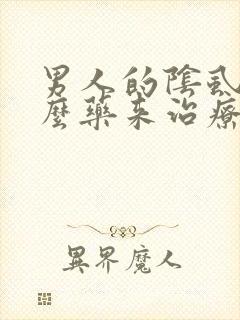 男人的陰虱
麼藥来治療
異界魔人